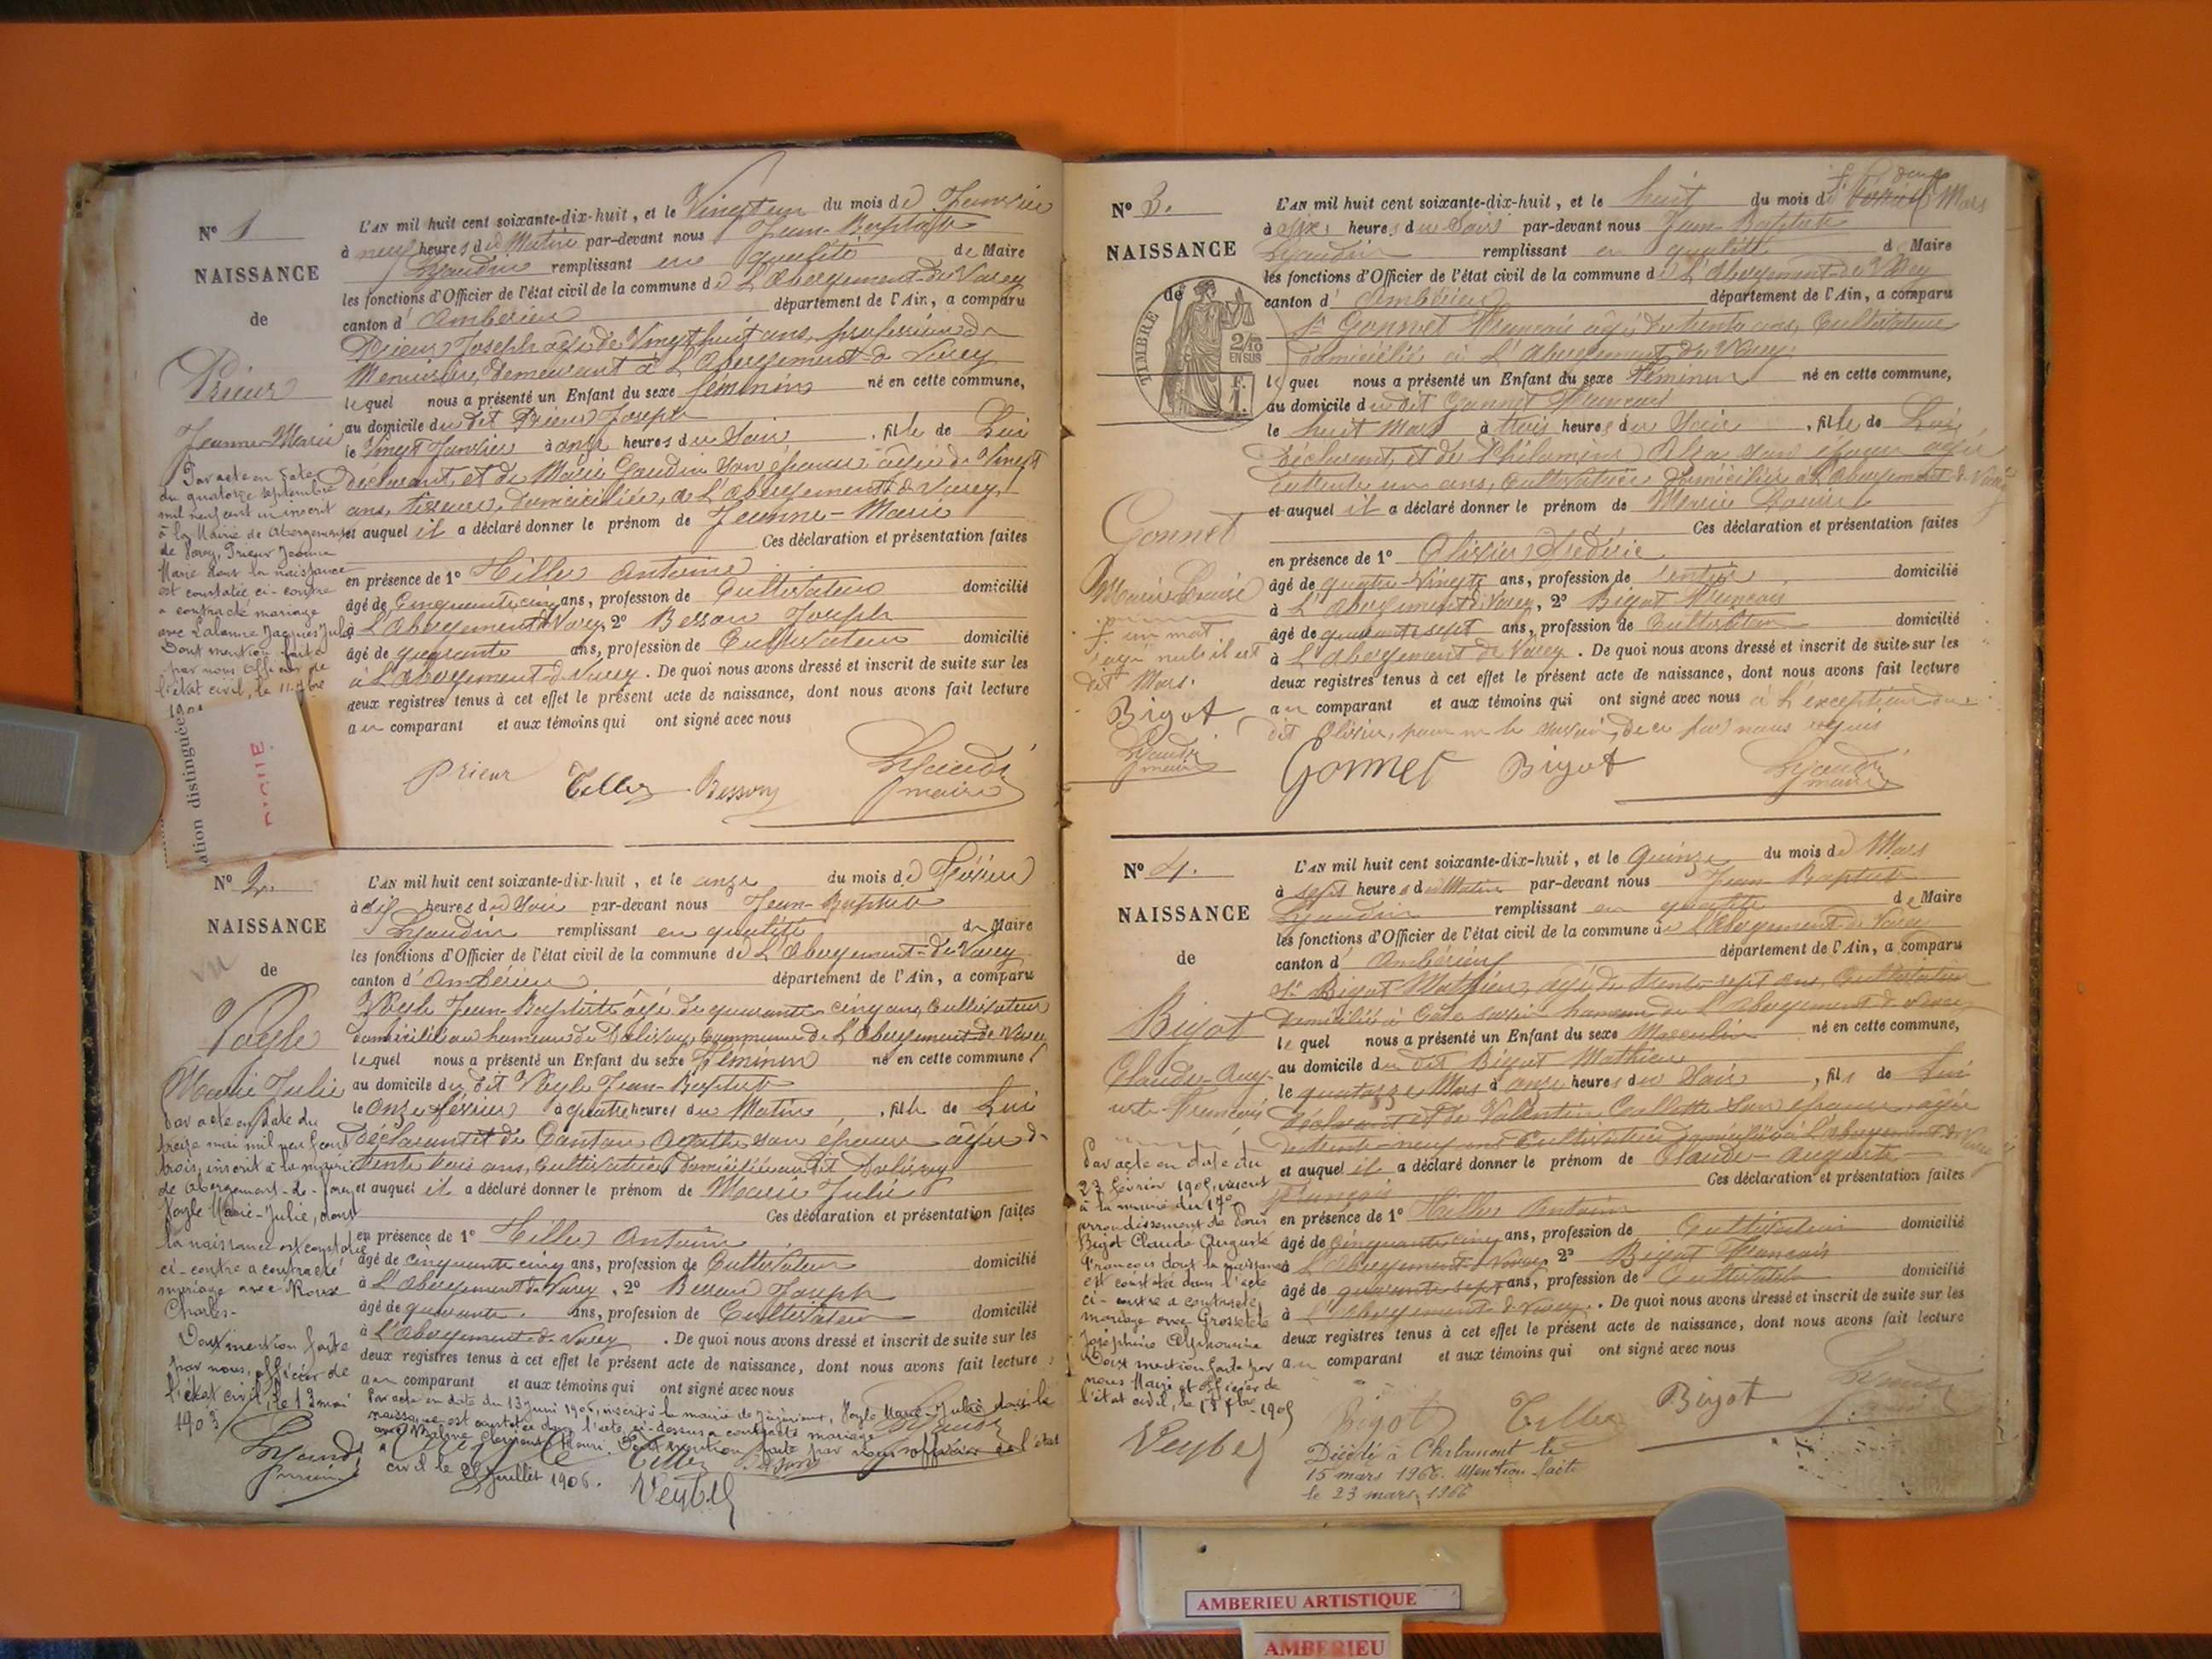 N° 1
NAISSANCE
de
Prieur
Jeanne-Marie
Par acte en date
du quatorze septembre
mil neuf cent un inscrit
à la Mairie de Abergement
de Varey, Prieur Jeanne
Marie dont la naissance
est constatée ci-contre
a contracté mariage
avec Lalanne Jacques Jules
Dont mention faite
par nous Officier de
l'état civil, le
L'AN mil huit cent soixante-dix-huit, et le Vingt un du mois de Janvier
à neuf heures du Matin par-devant nous Jean-Baptiste
remplissant en qualité de Maire
les fonctions d'Officier de l'état civil de la commune de L'Abergement-de-Varey
canton d'Ambérieu département de l'Ain, a comparu
Prieur Joseph âgé de Vingt huit ans, profession de
Menuisier, demeurant à L'Abergement-de Varey
lequel nous a présenté un Enfant du sexe féminin né en cette commune,
au domicile du dit Prieur Joseph
le Vingt Janvier à onze heures du Soir, fille de Lui
déclarant et de Marie Gaudin son épouse âgée de Vingt
ans, domiciliée, à L'Abergement de Varey,
et auquel il a déclaré donner le prénom de Jeanne-Marie
Ces déclaration et présentation faites
en présence de 1° Antoine
âgé de Cinquante cinq ans, profession de Cultivateur domicilié
à L'Abergement de Varey, 2° Besson Joseph
âgé de quarante ans, profession de Cultivateur domicilié
à L'Abergement de Varey. De quoi nous avons dressé et inscrit de suite sur les
deux registres tenus à cet effet le présent acte de naissance, dont nous avons fait lecture
au comparant et aux témoins qui ont signé avec nous
Prieur Besson
maire
ation distinguée
N° 2
NAISSANCE
de
Vayle
Marie Julie
Par acte en date du
treize mai mil neuf cent
trois, inscrit à la mairie
de Abergement-de-Varey
Vayle Marie-Julie, dont
la naissance est constatée
ci-contre a contracté
mariage avec Roux
Charles-
Dont mention faite
par nous, officier de
l'état civil, le 13 mai
1903
maire
L'AN mil huit cent soixante-dix-huit, et le onze du mois de Février
à six heures du Soir par-devant nous Jean-Baptiste
remplissant en qualité de Maire
les fonctions d'Officier de l'état civil de la commune de L'Abergement-de-Varey
canton d'Ambérieu département de l'Ain, a comparu
Vayle Jean-Baptiste âgé de quarante-cinq ans, Cultivateur
domicilié au hameau de commune de L'Abergement-de Varey
lequel nous a présenté un Enfant du sexe Féminin né en cette commune
au domicile du dit Vayle Jean-Baptiste
le Onze février à quatre heures du Matin, fille de Lui
déclarant et de Agathe son épouse âgée de
trente trois ans, Cultivatrice domiciliée au dit
et auquel il a déclaré donner le prénom de Marie Julie
Ces déclaration et présentation faites
en présence de 1° Antoine
âgé de cinquante cinq ans, profession de Cultivateur domicilié
à L'Abergement de Varey, 2° Besson Joseph
âgé de quarante ans, profession de Cultivateur domicilié
à L'Abergement-de Varey. De quoi nous avons dressé et inscrit de suite sur les
deux registres tenus à cet effet le présent acte de naissance, dont nous avons fait lecture
au comparant et aux témoins qui ont signé avec nous
Par acte en date du 13 juin 1906, inscrit à la mairie de Vayle Marie-Julie dont la
naissance est constatée dans l'acte ci-dessus a contracté mariage
avec Henri. Dont mention faite par nous officier de l'état
civil le juillet 1906.
N° 3.
NAISSANCE
de
TIMBRE
2/10
EN SUS
Gonnet
Marie Louise
un mot
rayé nul il est
dit Mars.
Bigot
maire
L'AN mil huit cent soixante-dix-huit, et le huit du mois de Mars
à six heures du Soir par-devant nous Jean-Baptiste
remplissant en qualité de Maire
les fonctions d'Officier de l'état civil de la commune de L'Abergement-de-Varey
canton d'Ambérieu département de l'Ain, a comparu
Sr Gonnet François âgé de trente ans, Cultivateur
domicilié à L'Abergement de Varey
lequel nous a présenté un Enfant du sexe Féminin né en cette commune,
au domicile du dit Gonnet François
le huit Mars à trois heures du Soir, fille de Lui
déclarant, et de son épouse âgée
de trente un ans, Cultivatrice domiciliée à L'Abergement de Varey
et auquel il a déclaré donner le prénom de Marie Louise
Ces déclaration et présentation faites
en présence de 1° Olivier
âgé de quatre-vingts ans, profession de rentier domicilié
à L'Abergement de Varey, 2° Bigot François
âgé de quarante sept ans, profession de Cultivateur domicilié
à L'Abergement de Varey. De quoi nous avons dressé et inscrit de suite sur les
deux registres tenus à cet effet le présent acte de naissance, dont nous avons fait lecture
au comparant et aux témoins qui ont signé avec nous à l'exception du
dit Olivier, pour ne le savoir, de ce par nous requis
Gonnet Bigot
maire
N° 4.
NAISSANCE
de
Bigot
Claude-Aug-
uste-François
Par acte en date du
23 février 1905, inscrit
à la mairie du 17e
arrondissement de Paris
Bigot Claude Auguste
François dont la naissance
est constatée dans l'acte
ci-contre a contracté
mariage avec Grosset
Joséphine Alphonsine
Dont mention faite par
nous Maire et officier de
l'état civil, le
L'AN mil huit cent soixante-dix-huit, et le Quinze du mois de Mars
à sept heures du Matin par-devant nous Jean-Baptiste
remplissant en qualité de Maire
les fonctions d'Officier de l'état civil de la commune de L'Abergement-de Varey
canton d'Ambérieu département de l'Ain, a comparu
Sr Bigot Mathieu, âgé de trente-sept ans, Cultivateur
domicilié à hameau de L'Abergement de Varey
lequel nous a présenté un Enfant du sexe Masculin né en cette commune,
au domicile du dit Bigot Mathieu
le quatorze Mars à onze heures du Soir, fils de Lui
déclarant et de Collette son épouse, âgée
de trente-neuf ans Cultivatrice domiciliée à L'Abergement de Varey
et auquel il a déclaré donner le prénom de Claude-Auguste-
François Ces déclaration et présentation faites
en présence de 1° Antoine
âgé de Cinquante cinq ans, profession de Cultivateur domicilié
à L'Abergement de Varey 2° Bigot François
âgé de quarante sept ans, profession de Cultivateur domicilié
à L'Abergement de Varey. De quoi nous avons dressé et inscrit de suite sur les
deux registres tenus à cet effet le présent acte de naissance, dont nous avons fait lecture
au comparant et aux témoins qui ont signé avec nous
Bigot Bigot
Décédé à Chalamont le
15 mars 1966. Mention faite
le 23 mars 1966
AMBERIEU ARTISTIQUE
AMBERIEU